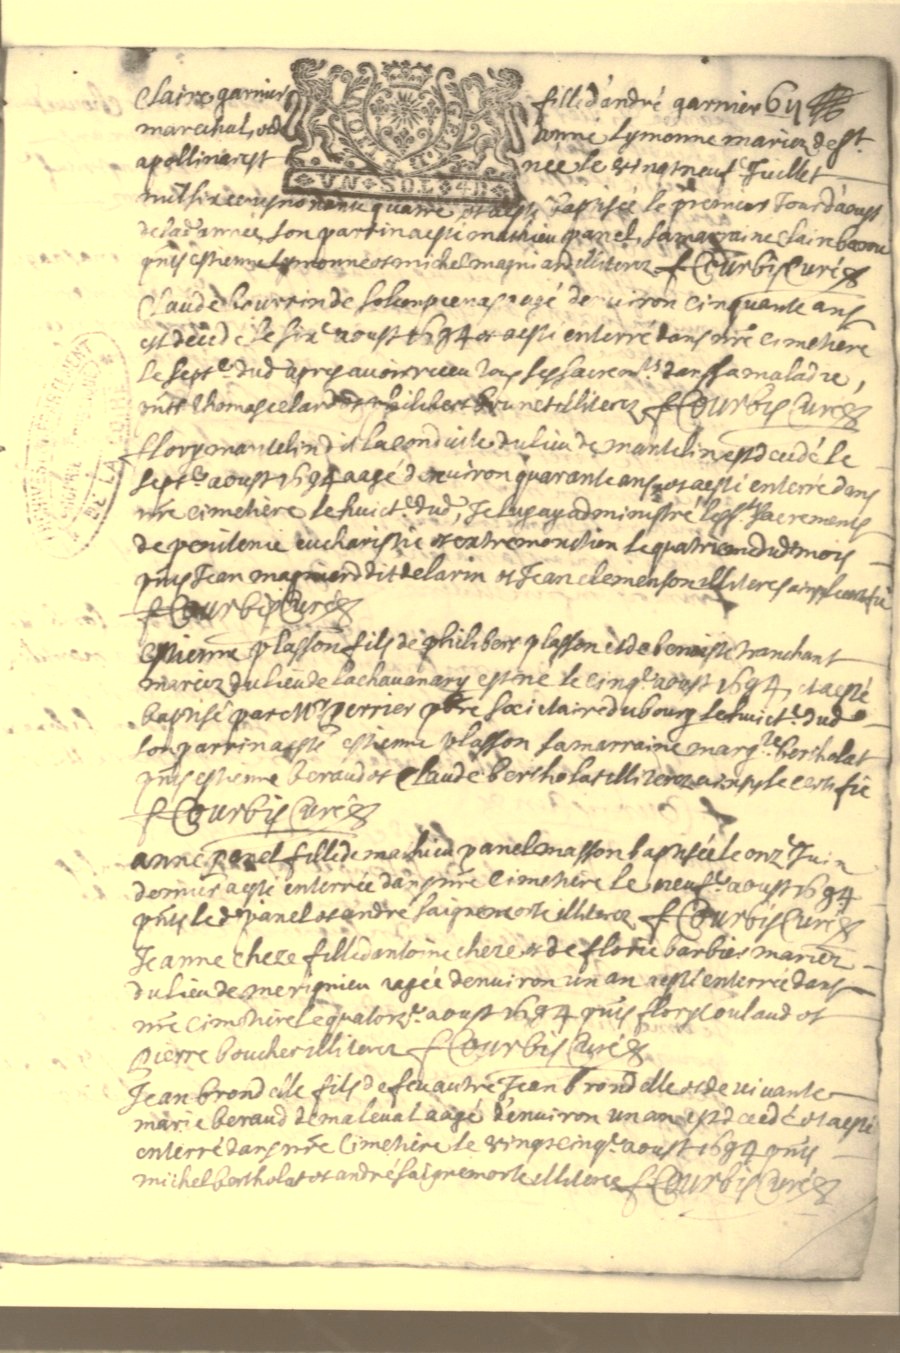 Claire garnier fille d'andré garnier 61
marechal, et de Lymonne mariez de St.
apollinar est née le vingt neuf Juillet
mil six cens nonante quatre et a esté baptisée le premier Jour d'aoust
de lad. année, son parrin a esté mathieu panel, sa marraine Claire
pnts estienne Lymonne et michel magniard illiterez f Courbis Curé
UN SOL 4D
Claude bourrin de agé denviron cinquante ans
est decedé le six. aoust 1694 et a esté enterré dans nre cimetiere
le sept. dud. apres avoir receu tous les sacremts. dans sa maladie,
pnts thomas celard et philibert brunet illiterez f Courbis Curé
flory mantelin dit la conduite du lieu de mantelin est decedé le
sept. aoust 1694 aagé denviron quarante ans, et a esté enterré dans
nre cimetiere le huict. dud., Je luy ay administré les Sts. sacrements
de penitence eucharistie et extremonction le quatrieme dud. mois
pnts Jean magniard dit delarin et Jean clemenson illiteres ainsy le certifie
f Courbis Curé
estienne plasson fils de philibert plasson et de benoiste tranchant
mariez du lieu de la chavanary est né le cinq. aoust 1694, et a esté
baptisé par Mr. perrier pbre societaire du bourg le huict. dud.
son parrin a esté estienne plasson sa marraine marg.te bertholat
pnts estienne beraud et Claude bertholat illiterez ainsy le certifie
f Courbis Curé
anne panel fille de mathieu panel masson baptisée le onz. Juin
dernier a esté enterrée dans nre cimetiere le neuf. aoust 1694
pnts le d. panel et andré saignemorte illiterez f Courbis Curé
Jeanne cheze fille dantoine cheze et de florie barbier mariez
du lieu de merignieu aagée denviron un an a esté enterrée dans
nre cimetiere le quatorz. aoust 1694 pnts flory coulaud et
pierre boucher illiterez f Courbis Curé
Jean brondelle fils de feu autre Jean brondelle et de vivante
marie beraud de maleval aagé d'environ un an est decedé et a esté
enterré dans nre cimetiere le vingt cinq. aoust 1694 pnts
michel bertholat et andré saignemorte illiterez f Courbis Curé